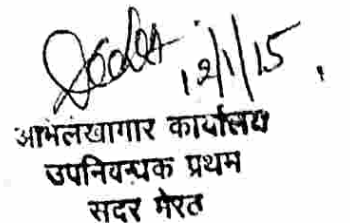 12/1/15
अभिलेखागार कार्यालय
उपनिबन्धक प्रथम
सदर मेरठ